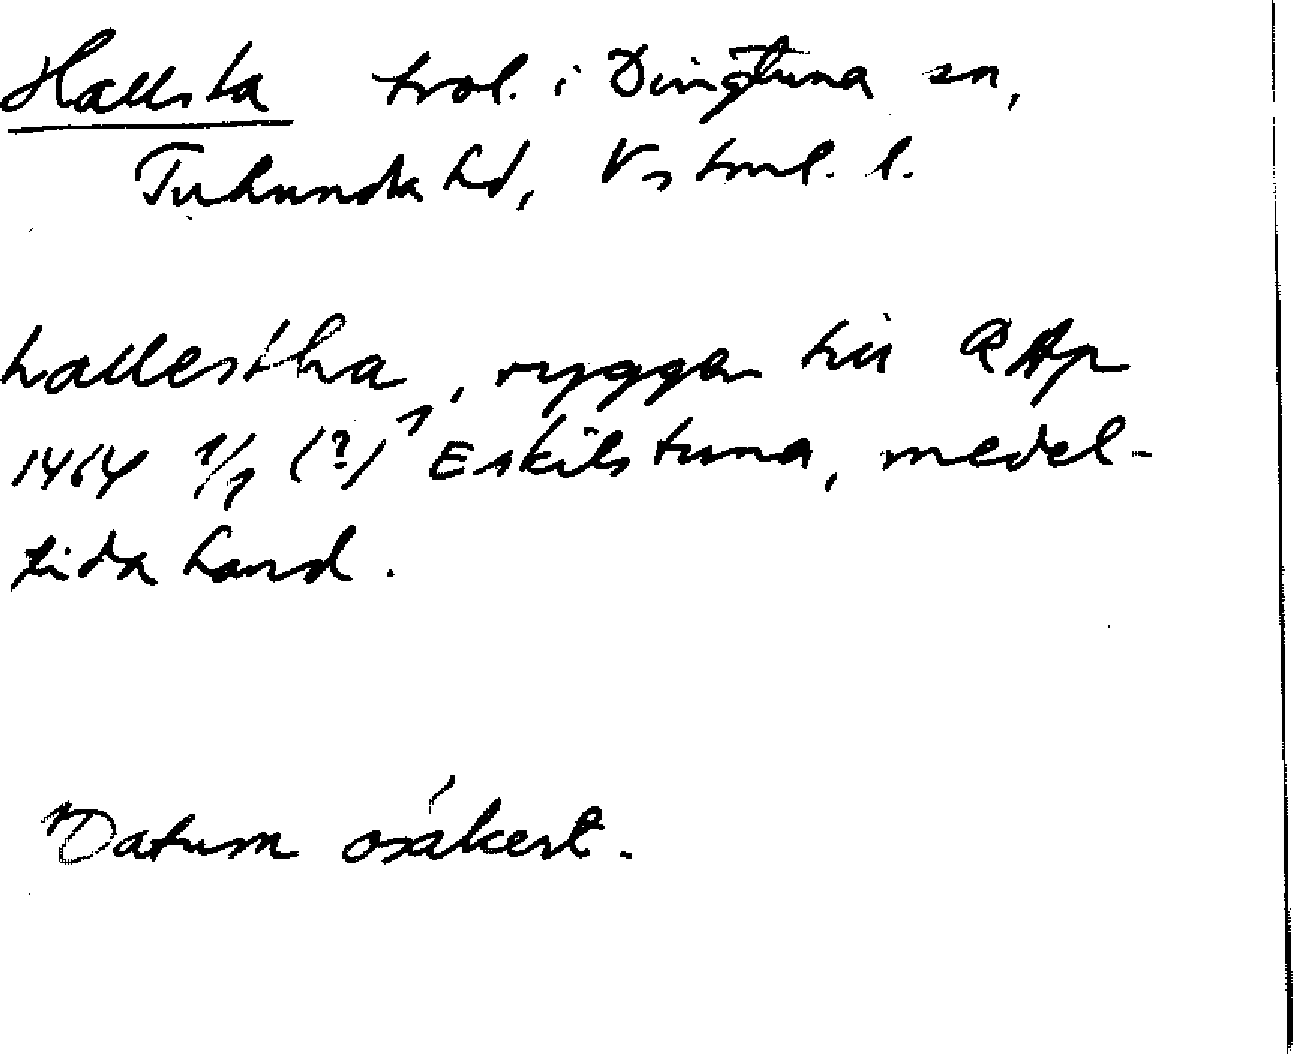 Hallsta trol. i Dingtuna sn,
Tuhundra hd, Vstml. l.
hallestha, ryggen till RAp
1464 1/1 (?) Eskilstuna, medel-
tida hand.
Datum osäkert.